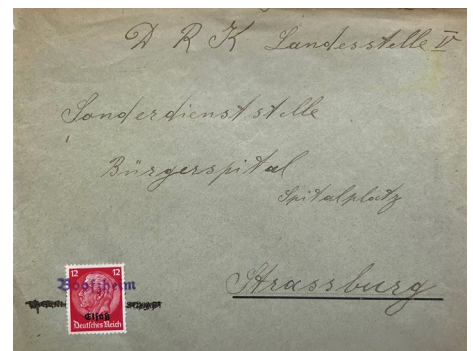 D R K Landesstelle V
Sonderdienststelle
Bürgerspital
Spitalplatz
Strassburg
12 12
Boofzheim
Elsaß
Deutsches Reich